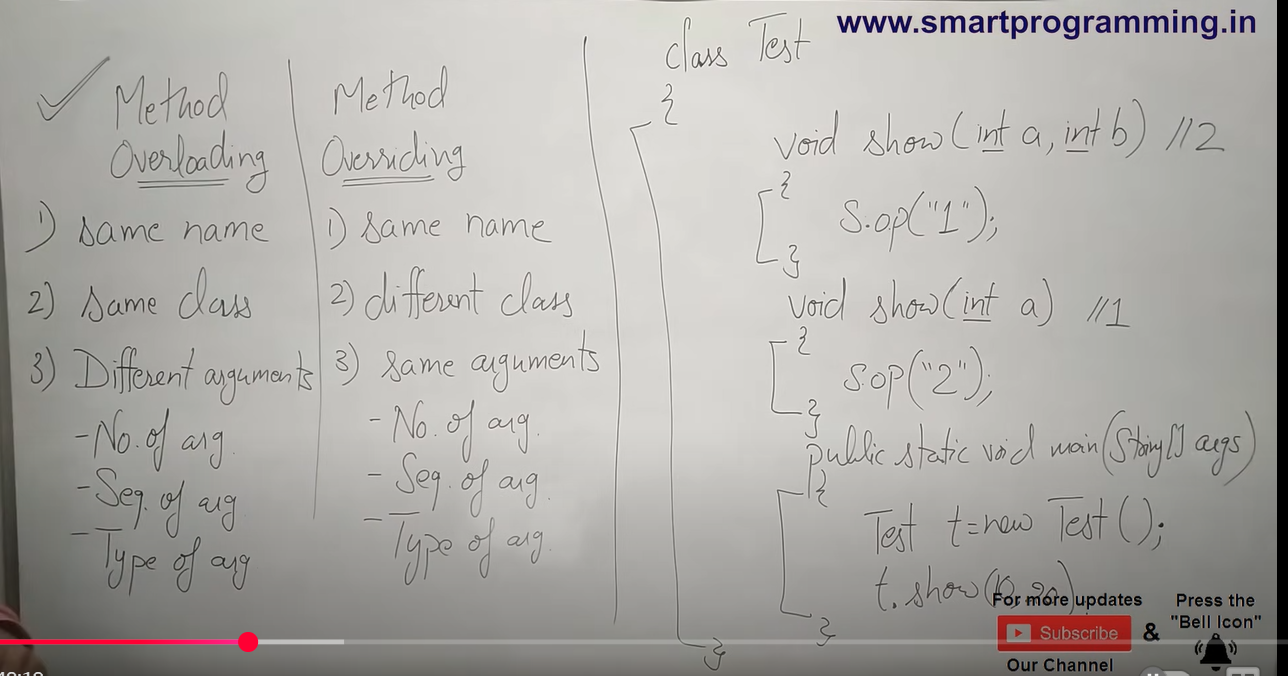 www.smartprogramming.in
Method
Overloading
1) same name
2) same class
3) Different arguments
-No. of arg
-Seq. of arg
-Type of arg
Method
Overriding
1) same name
2) different class
3) same arguments
-No. of arg.
-Seq. of arg.
-Type of arg.
class Test
{
void show(int a, int b) //2
{
S.op("1");
}
void show(int a) //1
{
S.op("2");
}
public static void main(String[] args)
{
Test t=new Test();
t.show(10,20)
}
}
For more updates
Subscribe
Our Channel
&
Press the
"Bell Icon"